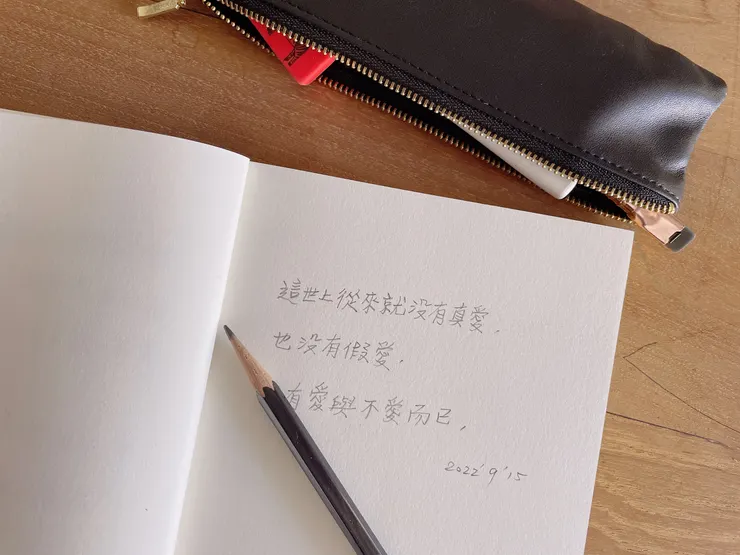 這世上從來就没有真愛，
也没有假愛，
有愛與不愛而已，
2022'9'15